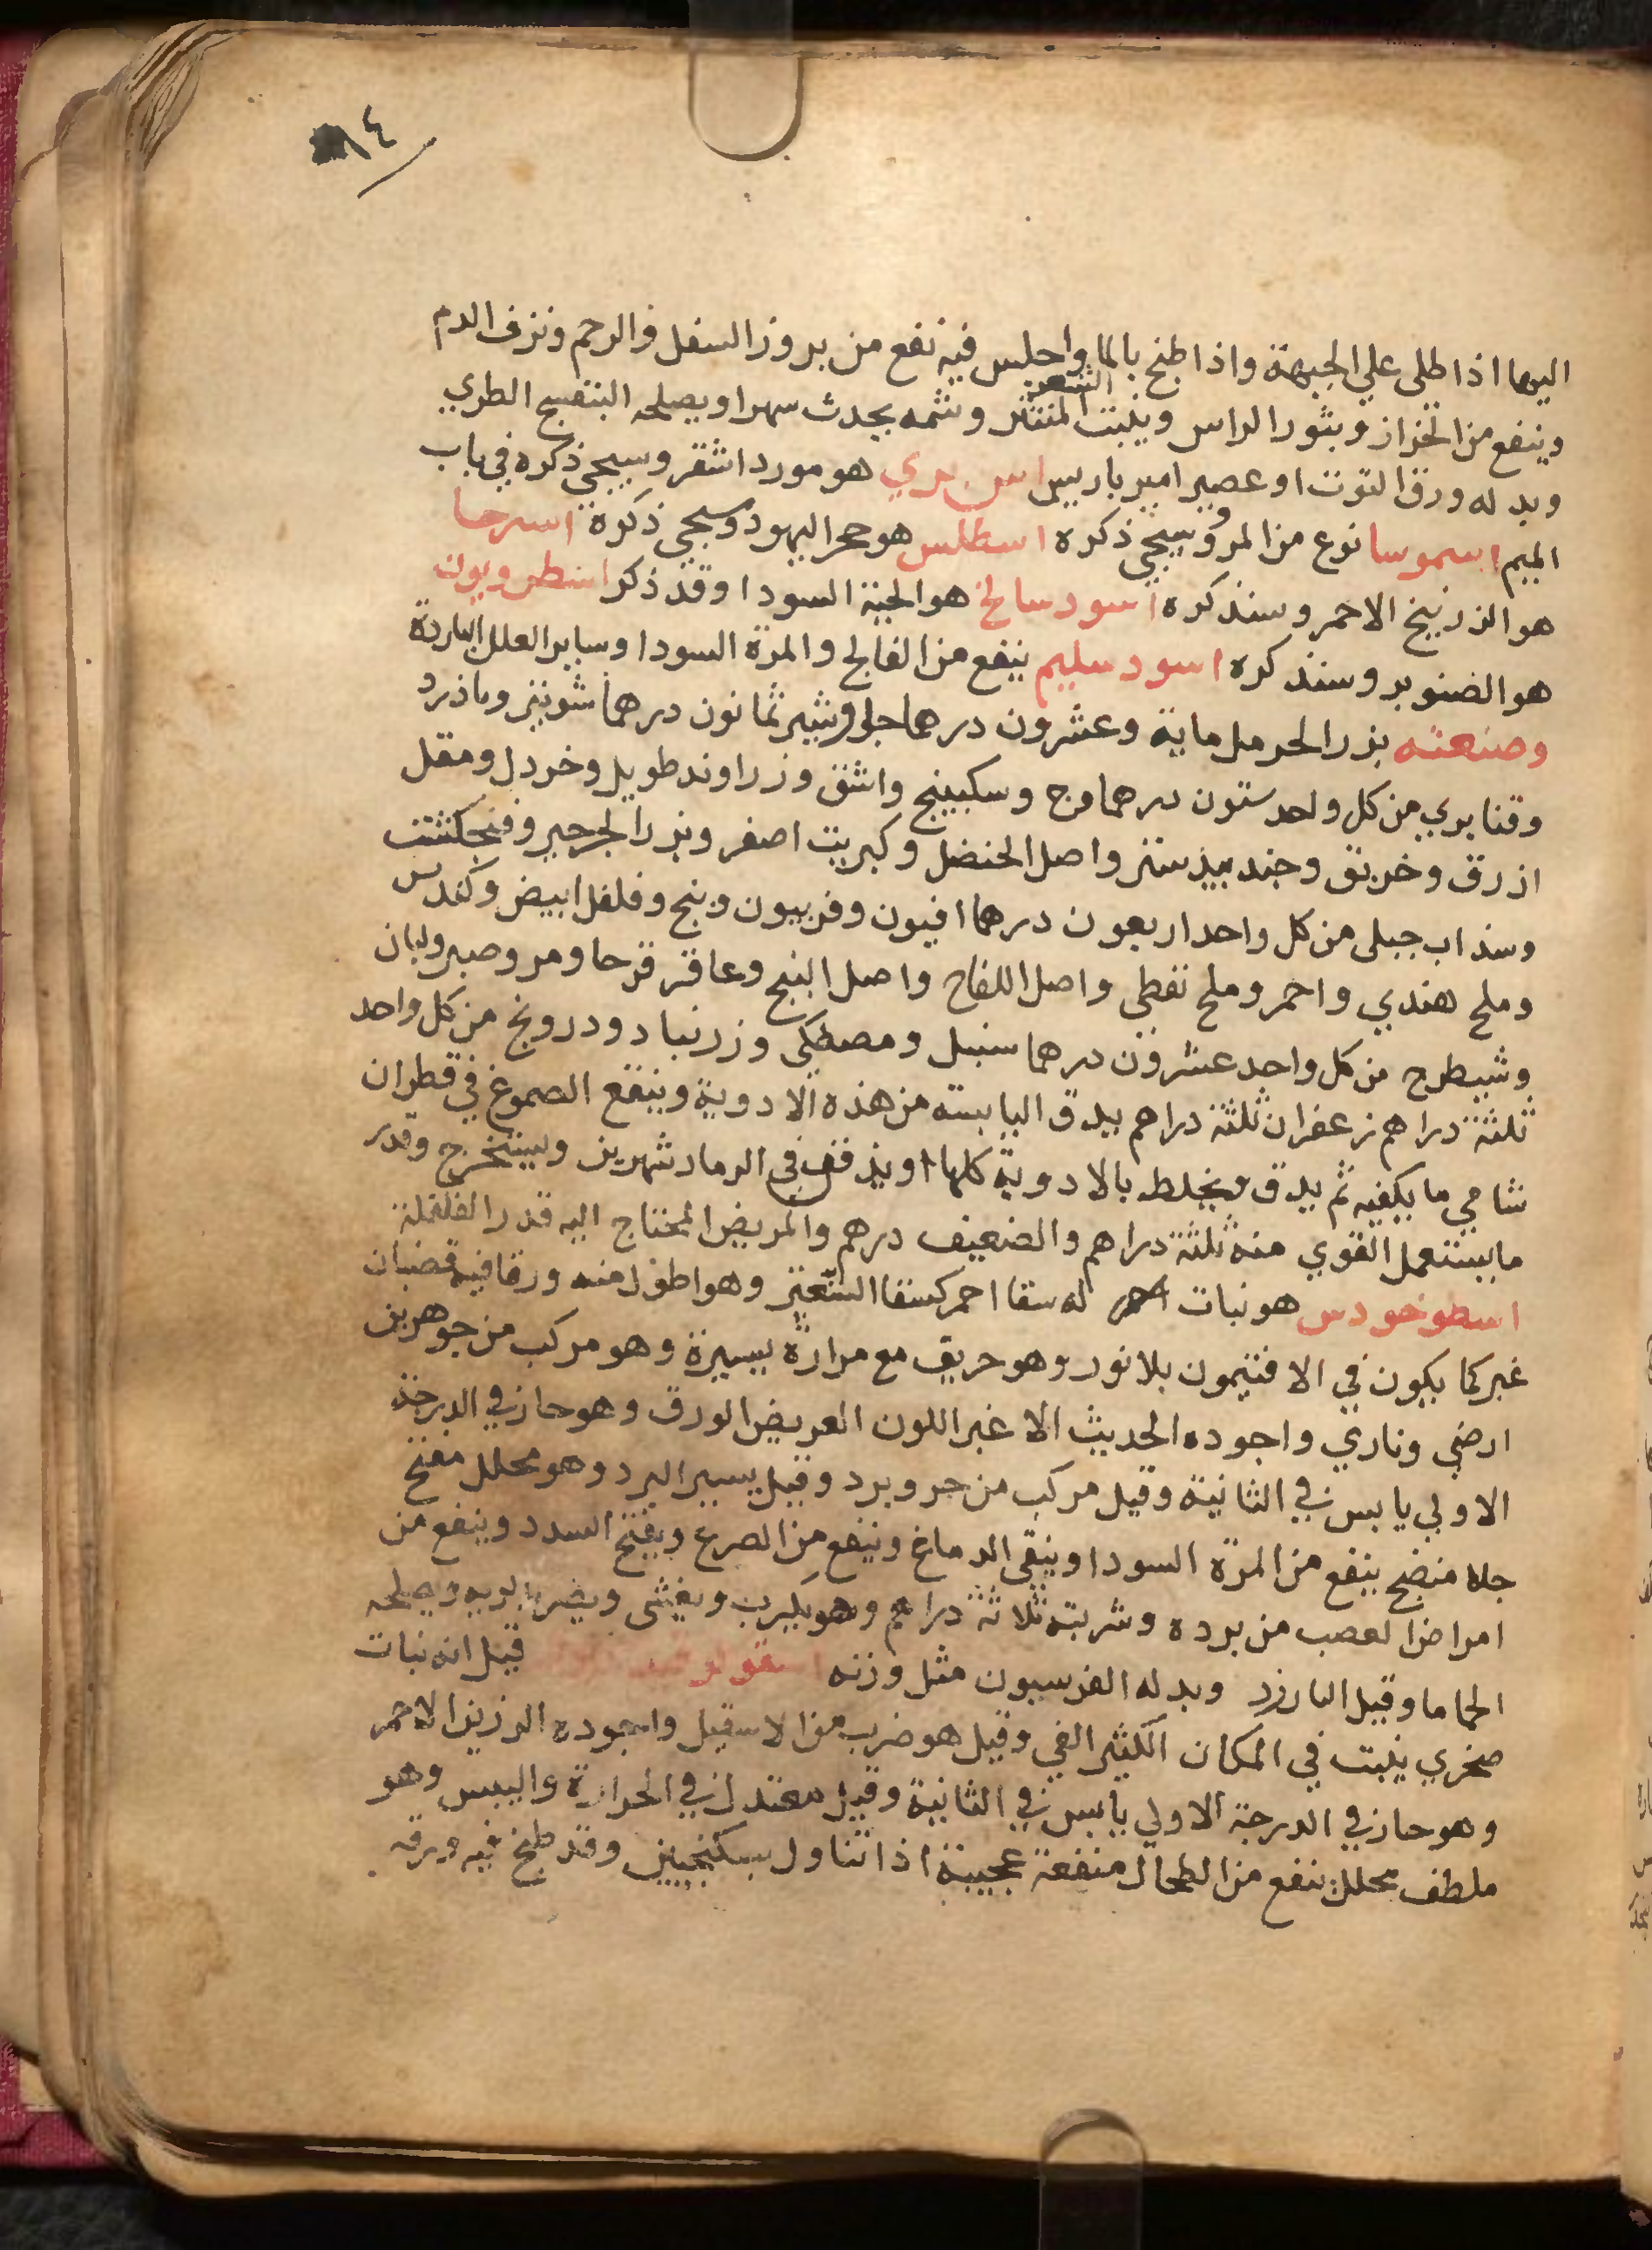 ١٤
اليها اذا طلى علي الجبهة واذا طبخ بالما واجلس فيه نفع من بروز السفل والرحم ونزف الدم
وينفع من الحزاز وبثور الراس وينبت الشعر المنتثر وشمه يحدث سهرا ويصلحه البنفسج الطري
وبدله ورق التوت او عصير امير باريس اس بري هو مورد اشقر وسيجي ذكره في باب
الميم اسموسا نوع من المر وسيجي ذكره اسطلس هو حجر اليهود وسيجي ذكره اسرحا
هو الزرنيخ الاحمر وسنذكره اسود سالخ هو الحية السودا وقد ذكر اسطروبون
هو الصنوبر وسنذكره اسود سليم ينفع من الفالج والمرة السودا وساير العلل الباردة
وصنعته بزر الحرمل ماية وعشرون درهما جاوشير ثمانون درهما شونيز وماذرد
وقنا بري من كل واحد ستون درهما وج وسكبينج واشق وزراوند طويل وخردل ومقل
ازرق وخربق وجندبيدستر واصل الحنضل وكبريت اصفر وبزر الجرجير وفنجكشت
وسذاب جبلى من كل واحد اربعون درهما افيون وفربيون وبنج وفلفل ابيض وكندس
وملح هندي واحمر وملح نفطى واصل اللفاح واصل البنج وعاقر قرحا ومر وصبر ولبان
وشيطرج من كل واحد عشرون درهما سنبل ومصطكى وزرنباد ودرونج من كل واحد
ثلثة دراهم زعفران ثلثة دراهم يدق اليابسة من هذه الادوية وينقع الصموغ في قطران
شامي ما يكفيه ثم يدق ويخلط بالادوية كلها ويدفن في الرماد شهرين ويستخرج وقدر
ما يستعمل القوي منه ثلثة دراهم والضعيف درهم والمريض المحتاج اليه قدر الفلفلة
اسطوخودس هو نبات احمر له سفا احمر كسفا الشعير وهو اطول منه ورقا فيه قضبان
غبر كما يكون في الافتيمون بلا نور وهو حريف مع مرارة يسيرة وهو مركب من جوهرين
ارضي وناري واجوده الحديث الاغبر اللون العريض الورق وهو حار في الدرجة
الاولي يابس في الثانية وقيل مركب من حر وبرد وقيل يسير البرد وهو محلل مفتح
جلا منضج ينفع من المرة السودا وينقى الدماغ وينفع من الصرع ويفتح السدد وينفع من
امراض العصب من برده وشربته ثلاثة دراهم وهو يكرب ويغثى ويضر بالريه ويصلحه
الحماما وقيل البارزد وبدله الفرسيون مثل وزنه قيل انه نبات
صخري ينبت في المكان الكثير الفي وقيل هو ضرب من الاسقيل واجوده الرزين الاحمر
وهو حار في الدرجة الاولي يابس في الثانية وقيل معتدل في الحرارة واليبس وهو
ملطف محلل ينفع من الطحال منفعة عجيبة اذا تناول بسكنجبين وقد طبخ فيه ورقه